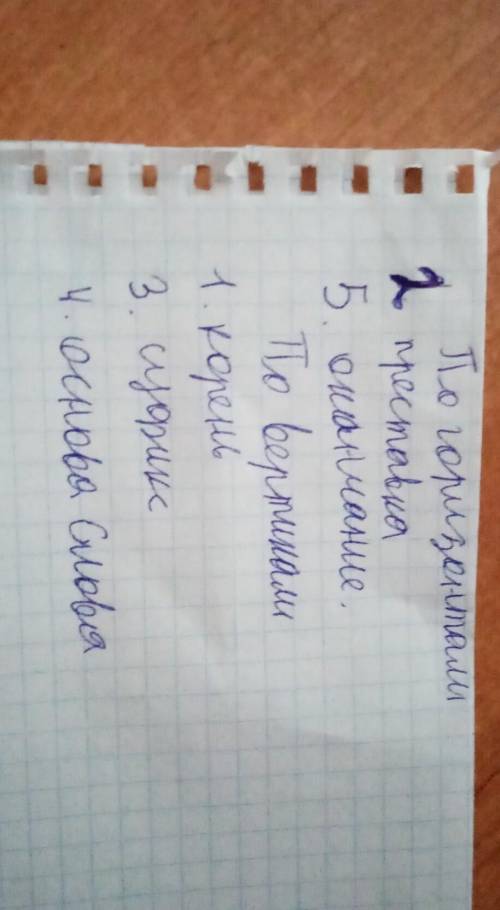 По горизонтали
2 преставка
5. оканчание.
По вертикали
1. корень
3. суфикс
4. основа слова